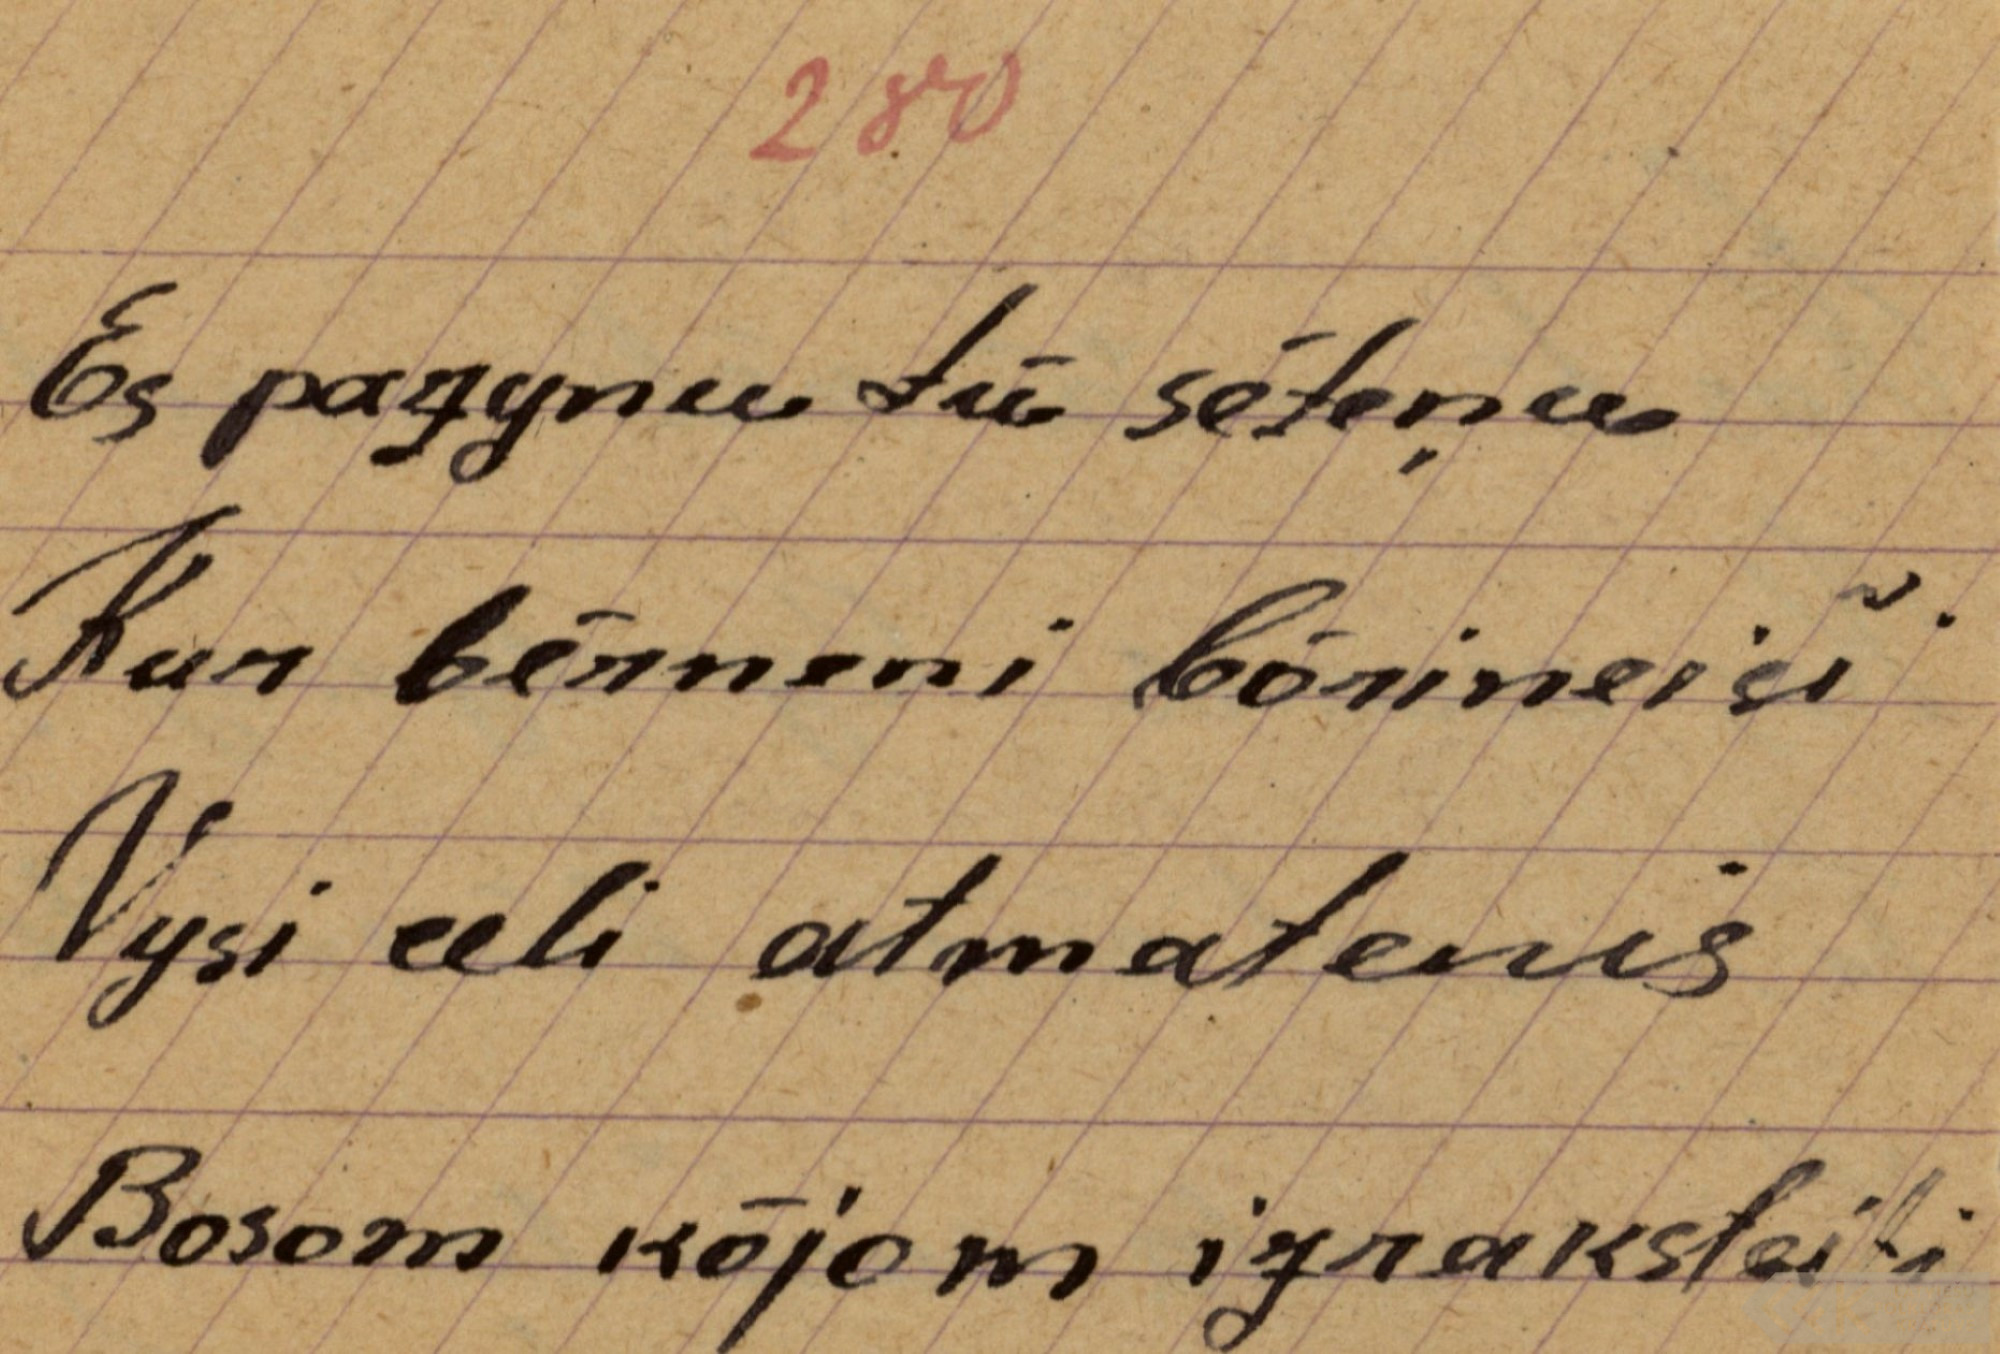 280
Es pazynu tū sēteņu
Kur bērneni bōrineiši.
Vysi celi atmatenis
Bosom kōjom izraksteiti